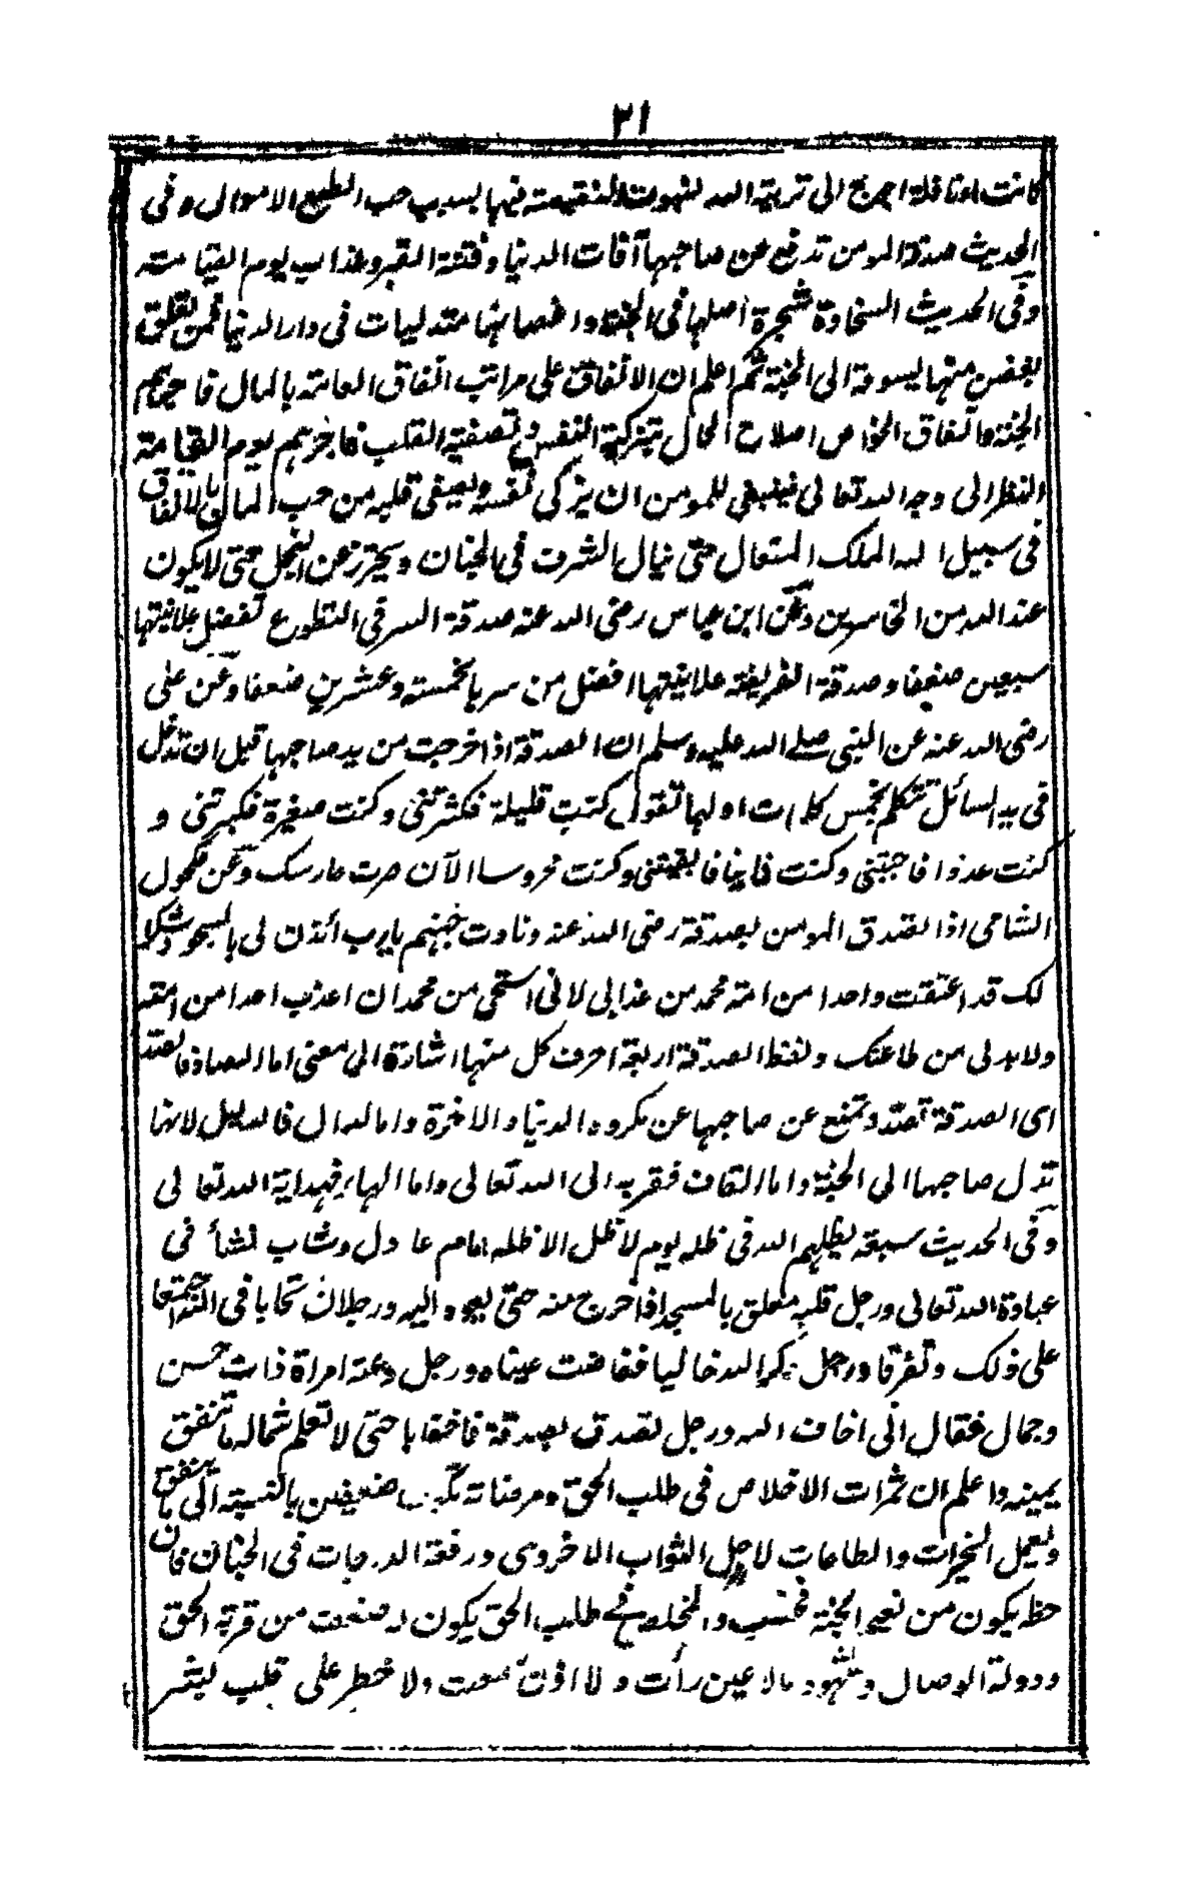 ٣١
كانت او نافلة احوج الى تربية الله لثبوت النقيصة فيها بسبب حب الطبع الاموال و فى
الحديث صدقة المومن تدفع عن صاحبها آفات الدنيا و فتنة القبر و عذاب يوم القيامته
و فى الحديث السخاوة شجرة اصلها فى الجنة و اغصانها متدليات فى دار الدنيا فمن تعلق
بغصن منها يسوقه الى الجنة ثم اعلم ان الانفاق على مراتب انفاق العامته بالمال فاجرهم
الجنة و انفاق الخواص اصلاح الحال بتزكية النفس و تصفية القلب فاجرهم يوم القيامة
النظر الى وجه الله تعالى فينبغى للمومن ان يزكى نفسه و يصفى قلبه من حب المال بالانفاق
فى سبيل الله الملك المتعال حتى ينال الشرف فى الجنان و يحترز عن البخل حتى لا يكون
عند الله من الخاسرين و عن ابن عباس رضى الله عنه صدقة السر فى التطوع تفضل علانيتها
سبعين ضعفا و صدقة الفريضة علانيتها افضل من سر بالخمسته و عشرين ضعفا و عن على
رضى الله عنه عن النبى صلے الله عليه وسلم ان الصدقة اذا خرجت من يد صاحبها قبل ان تدخل
فى يد السائل تتكلم بخمس كلمات اولها تقول كنت قليلة فكثرتنى و كنت صغيرة فكبرتنى و
كنت عدوا فاحببتنى و كنت فانيا فابقيتنى و كنت محروسا الآن صرت حارسك و عن مكحول
الشامى اذا تصدق المومن بصدقة رضى الله عنه و نادت جهنم يا رب ائذن لى بالسجود شكرا
لك قد اعتقت واحدا من امة محمد من عذابى لانى استحى من محمد ان اعذب احدا من امته
ولا بد لى من طاعتك و لفظ الصدقة اربعة احرف كل منها اشارة الى معنى اما الصاد فالصد
اى الصدقة تصد و تمنع عن صاحبها عن مكروه الدنيا و الاخرة و اما الدال فالدليل لانها
تدل صاحبها الى الجنة و اما القاف فقربه الى الله تعالى و اما الهاء فهداية الله تعالى
و فى الحديث سبعة يظلهم الله فى ظله يوم لا ظل الا ظله امام عادل و شاب نشأ فى
عبادة الله تعالى و رجل قلبه معلق بالمسجد اذا خرج منه حتى يعود اليه و رجلان تحابا فى الله اجتمعا
على ذلك و تفرقا و رجل ذكر الله خاليا ففاضت عيناه و رجل دعته امراة ذات حسن
و جمال فقال انى اخاف الله و رجل تصدق بصدقة فاخفاها حتى لا تعلم شماله ما تنفق
يمينه و اعلم ان ثمرات الاخلاص فى طلب الحق و مرضاته تكون ضعيفين بالنسبة الى ما ينفق
و يعمل الخيرات و الطاعات لاجل الثواب الاخروى و رفعة الدرجات فى الجنان فان
حظه يكون من نعيم الجنة فحسب و المخلص فى طلب الحق يكون له ضعف من قربة الحق
و دولة الوصال و شهود مالا عين رأت و لا اذن سمعت ولا خطر على قلب بشر